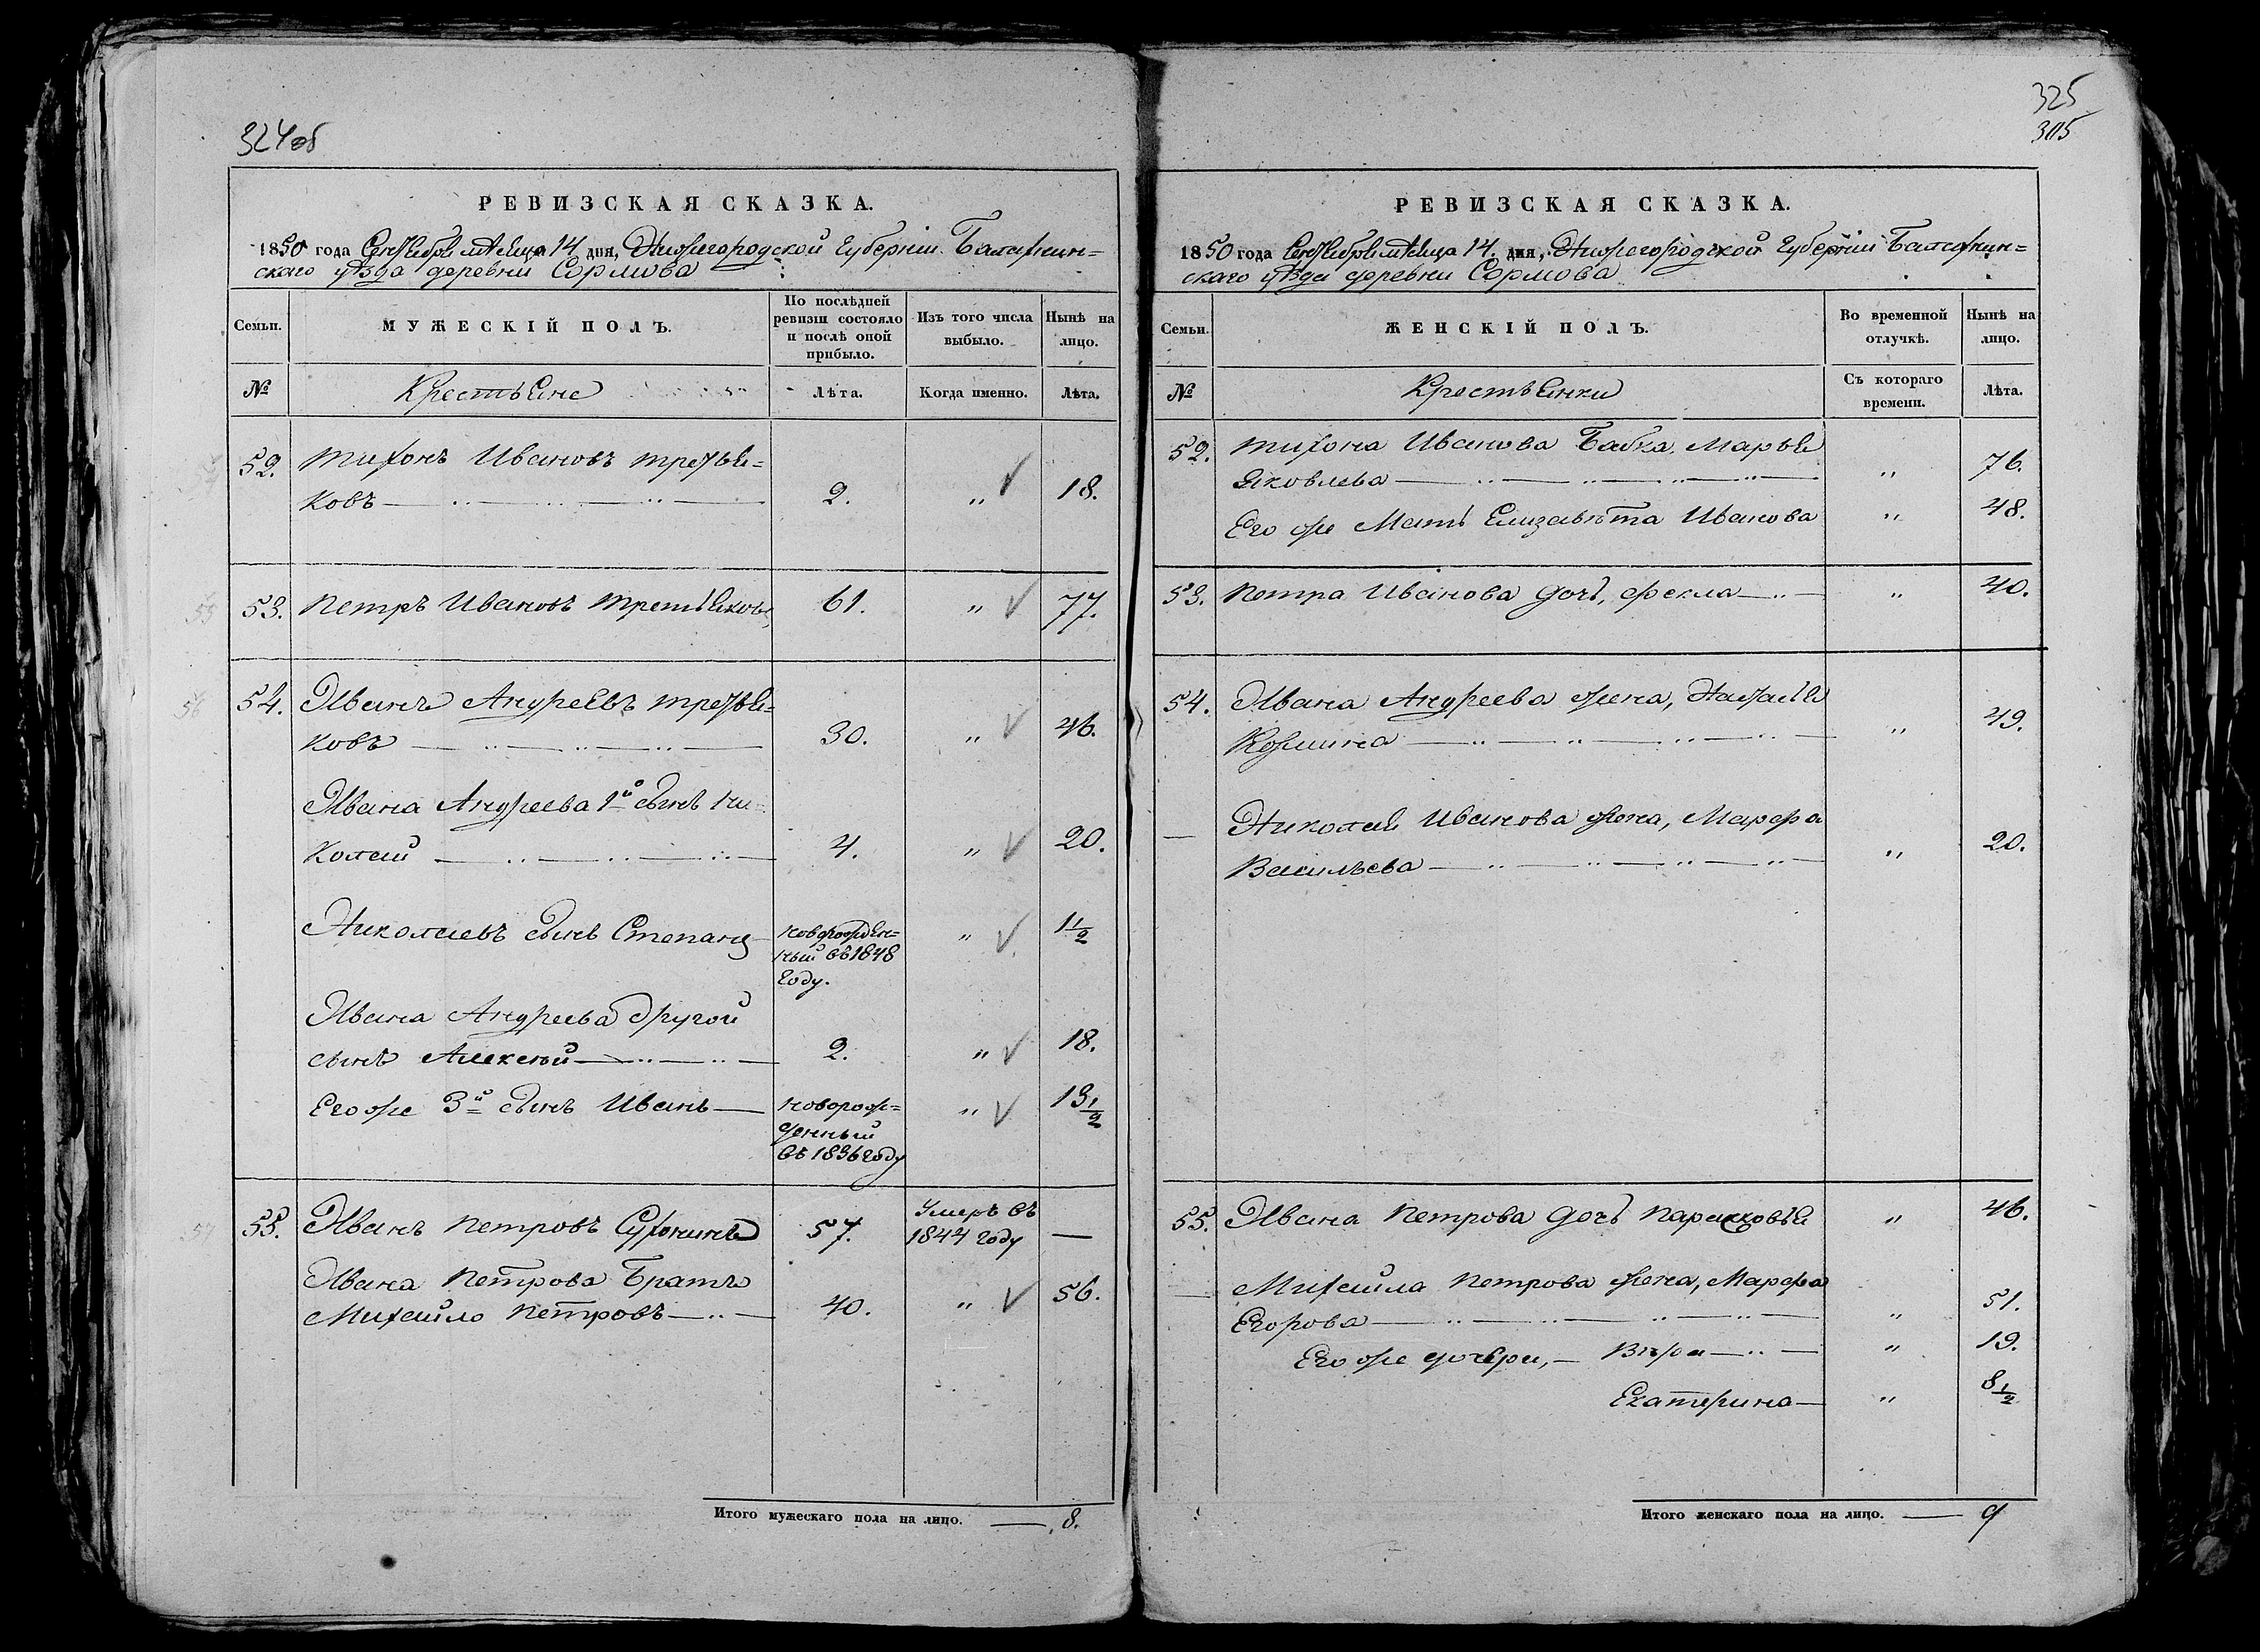 324об
РЕВИЗСКАЯ СКАЗКА.
1850 года Сентября мѣсяца 14 дня, Нижегородской Губерніи Балахнин=
скаго уѣзда деревни Сормова
Семьи.
МУЖЕСКІЙ ПОЛЪ.
По послѣдней
ревизіи состояло
и послѣ оной
прибыло.
Изъ того числа
выбыло.
Нынѣ на
лицо.
№
Крестьяне
Лѣта.
Когда именно.
Лѣта.
52. Тихонъ Ивановъ Третья=
ковъ 2. „ 18.
53. Петръ Ивановъ Третьяковъ 61. „ 77.
54. Иванъ Андреевъ Третья=
ковъ 30. „ 46.
Ивана Андреева 1й сынъ Ни=
колай 4. „ 20.
Николаевъ сынъ Степанъ новорожден= „ 1 1/2
ный въ 1848
году.
Ивана Андреева другой
сынъ Алексѣй 2. „ 18.
Его же 3й сынъ Иванъ новорож= „ 13 1/2
денный
въ 1836 году
55. Иванъ Петровъ Сухонинъ 57. Умеръ въ
1844 году —
Ивана Петрова Братъ
Михайло Петровъ 40. „ 56.
Итого мужескаго пола на лицо. — 8.
325
305
РЕВИЗСКАЯ СКАЗКА.
1850 года Сентября мѣсяца 14. дня, Нижегородской Губерніи Балахнин=
скаго уѣзда деревни Сормова
Семьи.
ЖЕНСКІЙ ПОЛЪ.
Во временной
отлучкѣ.
Нынѣ на
лицо.
№
Крестьянки
Съ котораго
времени.
Лѣта.
52. Тихона Иванова Бабка Марья
Яковлева „ 76.
Его же Мать Елизавѣта Иванова „ 48.
53. Петра Иванова дочь, Фекла „ 40.
54. Ивана Андреева жена, Наталья
Козмина „ 49.
— Николая Иванова жена, Марфа
Васильева „ 20.
55. Ивана Петрова дочь Парасковья „ 46.
— Михайла Петрова жена, Марфа
Егорова „ 51.
Его же дочери, — Вѣра „ 19.
Екатерина „ 8 1/2
Итого женскаго пола на лицо. — 9